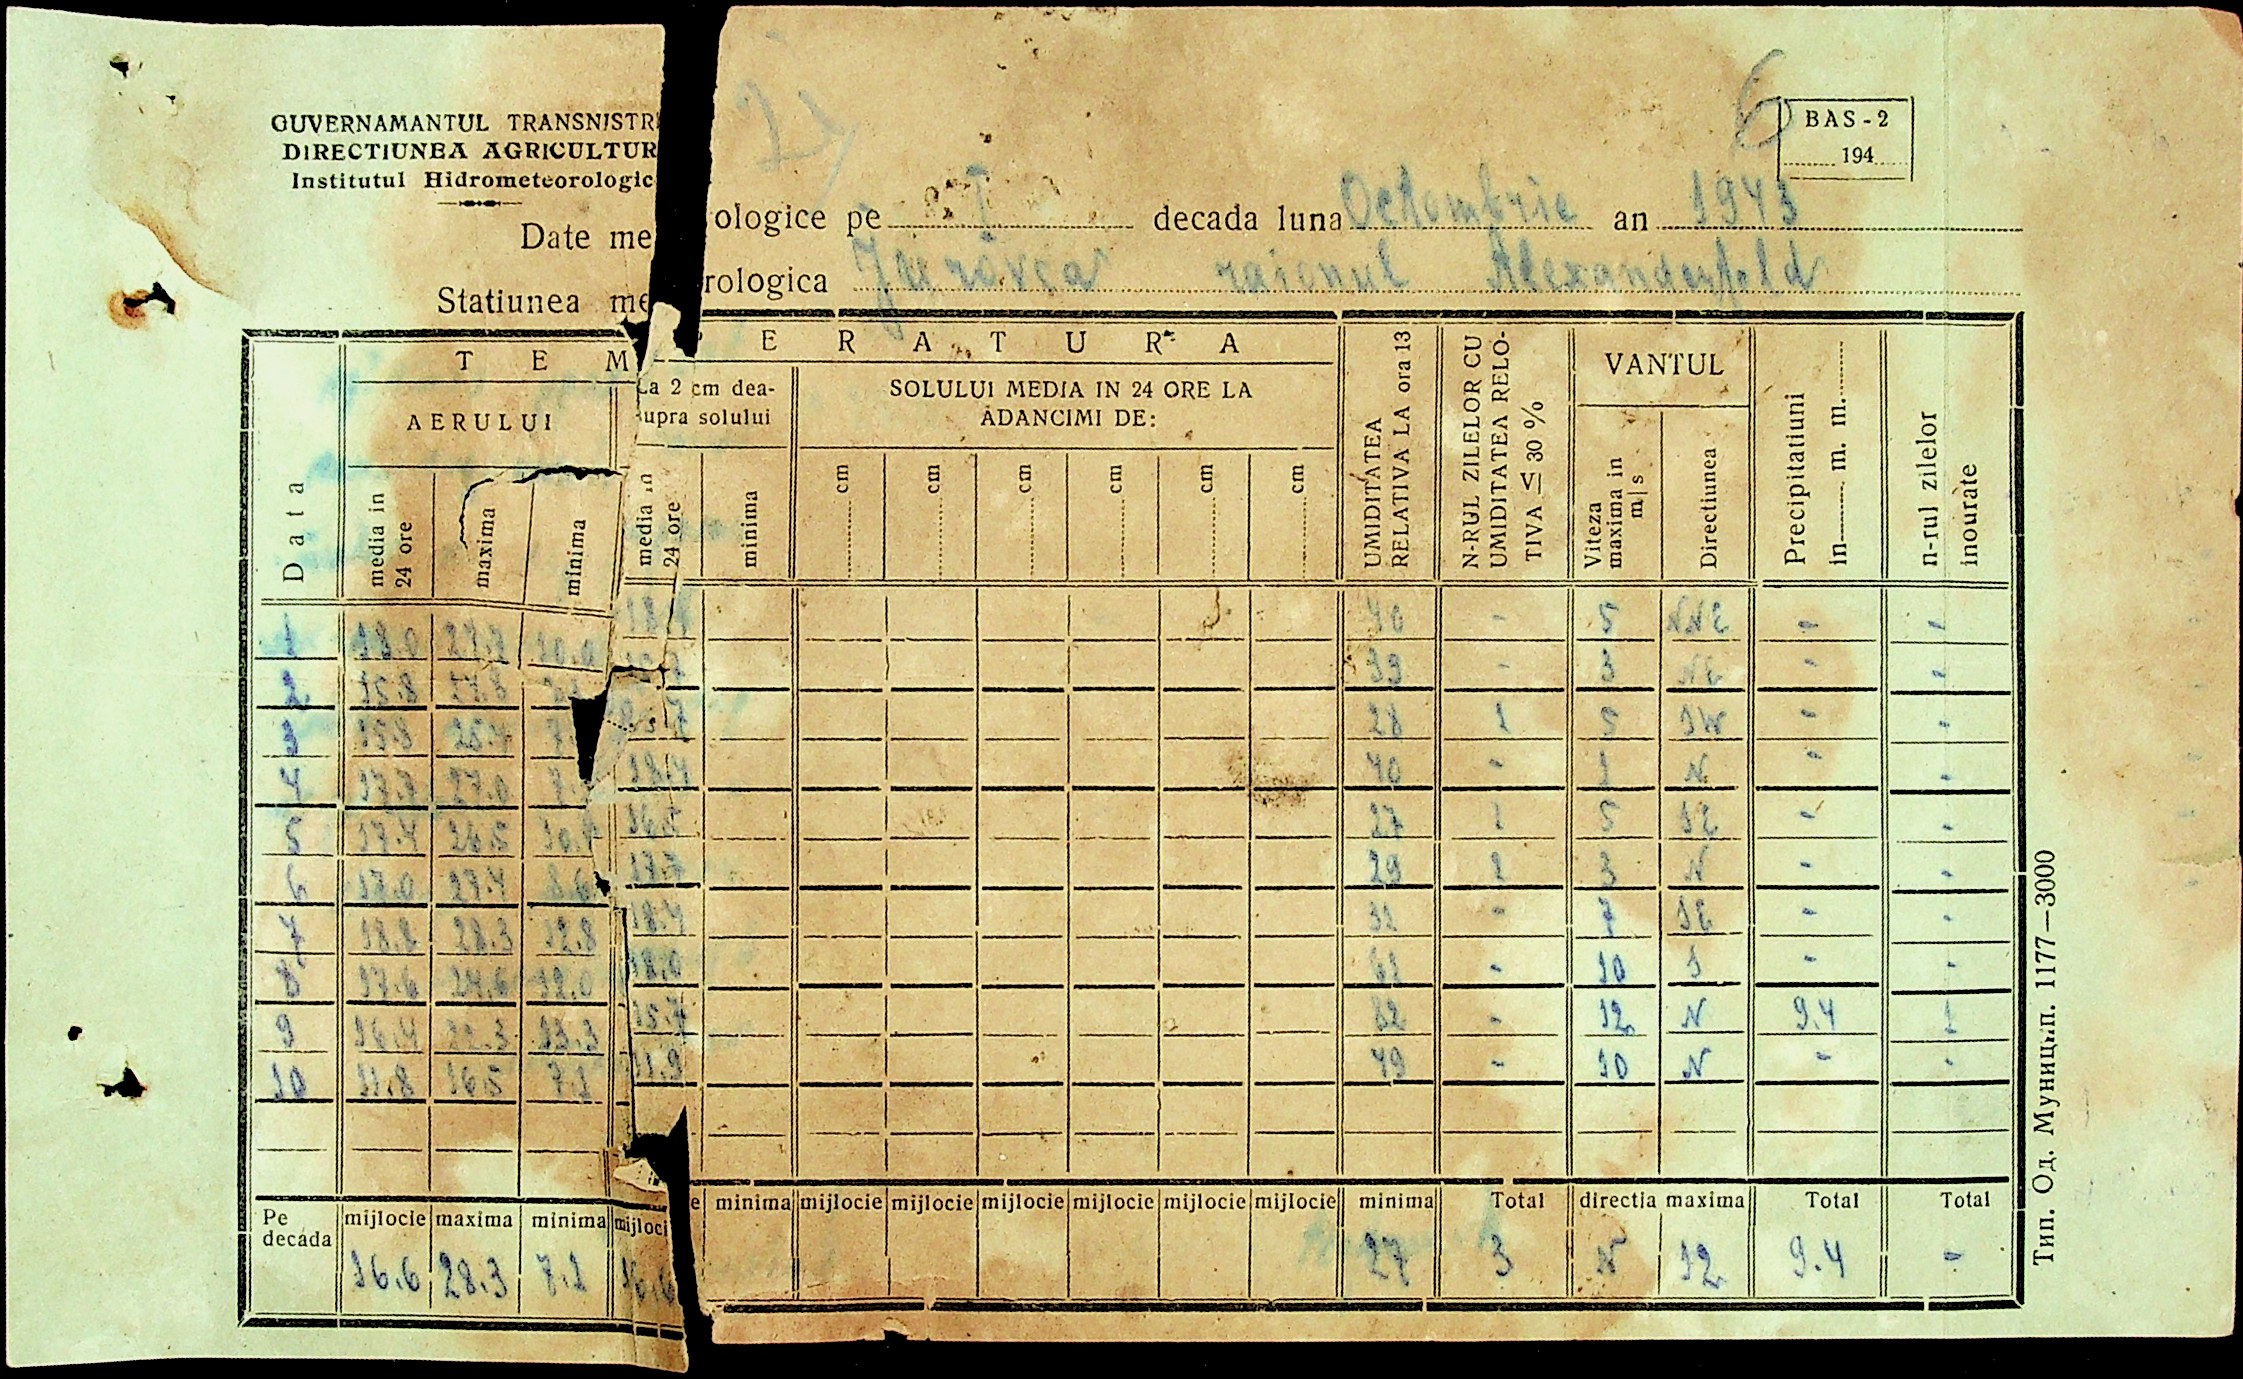 6
BAS-2
194
GUVERNAMANTUL TRANSNISTR
DIRECTIUNEA AGRICULTUR
Institutul Hidrometeorologic
Date me ologice pe I decada luna Octombrie an 1943
Statiunea me rologica raionul Alexanderfeld
T E M P E R A T U R A
AERULUI
La 2 cm dea-
supra solului
SOLULUI MEDIA IN 24 ORE LA
ADANCIMI DE:
UMIDITATEA
RELATIVA LA ora 13
N-RUL ZILELOR CU
UMIDITATEA RELO-
TIVA ≤ 30 %
VANTUL
Precipitatiuni
in m. m.
n-rul zilelor
inourate
Data
media in
24 ore
maxima
minima
media in
24 ore
minima
cm cm cm cm cm cm
Viteza
maxima in
m|s
Directiunea
1 18.0 10.0 40 - 5 NNE - -
2 15.8 27.8 39 - 3 NE - -
3 15.8 28 1 5 SW - -
4 27.0 18.4 40 - 1 N - -
5 17.4 26.5 27 1 5 SE - -
6 27.4 8.6 29 1 3 N - -
7 18.8 28.3 12.8 18.4 32 - 7 SE - -
8 17.6 24.6 12.0 18.0 61 - 10 S - -
9 16.4 13.3 15.7 82 - 12 N 9.4 1
10 11.8 16.5 7.1 11.9 49 - 10 N - -
Pe
decada
mijlocie maxima minima mijloci e minima mijlocie mijlocie mijlocie mijlocie mijlocie mijlocie minima Total directia maxima Total Total
16.6 28.3 7.1 16.6 27 3 N 12 9.4 -
Тип. Од. Муницип. 1177—3000